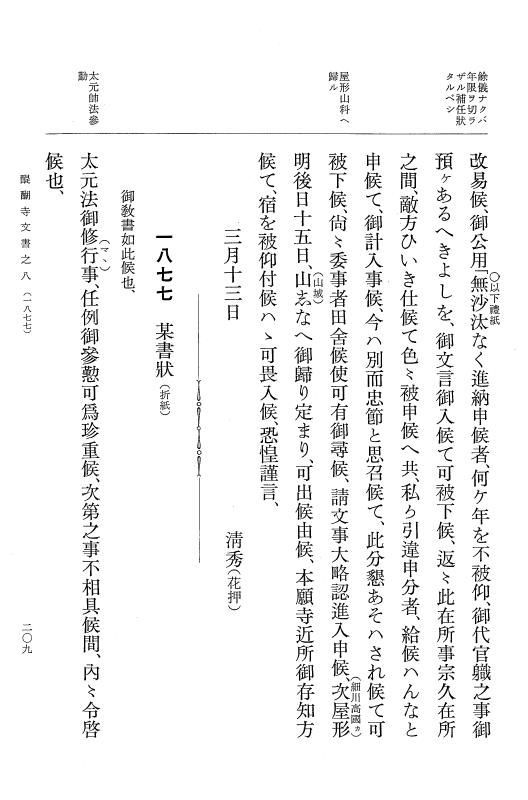 餘儀ナクバ
年限ヲ切ラ
ザル補任狀
タルベシ
屋形山科ヘ
歸ル
太元帥法參
勤
改易候、御公用「無沙汰なく進納申候者、何ケ年を不被仰、御代官職之事御
○以下禮紙
預ケあるへきよしを、御文言御入候て可被下候、返〻此在所事宗久在所
之間、敵方ひいき仕候て色〻被申候へ共、私ゟ引違申分者、給候ハんなと
申候て、御計入事候、今ハ別而忠節と思召候て、此分懇あそハされ候て可
被下候、尙〻委事者田舍候使可有御尋候、請文事大略認進入申候、次屋形
(細川高國カ)
明後日十五日、山志なへ御歸り定まり、可出候由候、本願寺近所御存知方
(山城)
候て、宿を被仰付候ハヽ可畏入候、恐惶謹言、
三月十三日
淸秀(花押)
一八七七 某書狀(折紙)
御敎書如此候也、
太元法御修行事、任例御參懃可爲珍重候、次第之事不相具候間、內〻令啓
(マヽ)
候也、
醍醐寺文書之八(一八七七)
二〇九